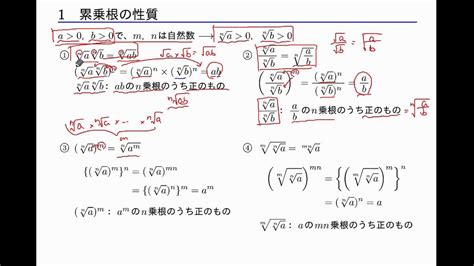 1 累乗根の性質
a > 0, b > 0で、m, nは自然数 → ⁿ√a > 0, ⁿ√b > 0
① ⁿ√a ⁿ√b = ⁿ√ab √a×√b = √ab
(ⁿ√a ⁿ√b)ⁿ = (ⁿ√a)ⁿ × (ⁿ√b)ⁿ = ab
ⁿ√a ⁿ√b : abのn乗根のうち正のもの
ⁿ√ab
ⁿ√a × ⁿ√a × ··· × ⁿ√a
② ⁿ√a/ⁿ√b = ⁿ√(a/b) √a/√b = √(a/b)
(ⁿ√a/ⁿ√b)ⁿ = (ⁿ√a)ⁿ/(ⁿ√b)ⁿ = a/b
ⁿ√a/ⁿ√b : a/b のn乗根のうち正のもの = ⁿ√(a/b)
③ (ⁿ√a)ᵐ = ⁿ√aᵐ
{(ⁿ√a)ᵐ}ⁿ = (ⁿ√a)ᵐⁿ
= {(ⁿ√a)ⁿ}ᵐ = aᵐ
(ⁿ√a)ᵐ : aᵐのn乗根のうち正のもの
④ ᵐ√ⁿ√a = ᵐⁿ√a
(ᵐ√ⁿ√a)ᵐⁿ = {(ᵐ√ⁿ√a)ᵐ}ⁿ
= (ⁿ√a)ⁿ = a
ᵐ√ⁿ√a : aのmn乗根のうち正のもの